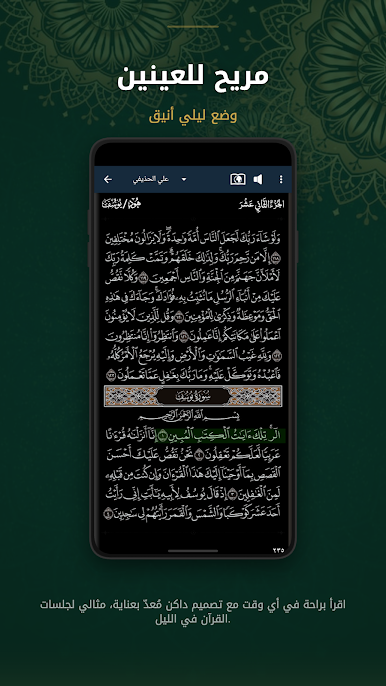 مريح للعينين
وضع ليلي أنيق
علي الحذيفي
الجزء الثاني عشر
هود / يوسف
وَلَوْ شَآءَ رَبُّكَ لَجَعَلَ ٱلنَّاسَ أُمَّةً وَٰحِدَةً ۖ وَلَا يَزَالُونَ مُخْتَلِفِينَ
﴿١١٨﴾ إِلَّا مَن رَّحِمَ رَبُّكَ ۚ وَلِذَٰلِكَ خَلَقَهُمْ ۗ وَتَمَّتْ كَلِمَةُ رَبِّكَ
لَأَمْلَأَنَّ جَهَنَّمَ مِنَ ٱلْجِنَّةِ وَٱلنَّاسِ أَجْمَعِينَ ﴿١١٩﴾ وَكُلًّا نَّقُصُّ
عَلَيْكَ مِنْ أَنۢبَآءِ ٱلرُّسُلِ مَا نُثَبِّتُ بِهِۦ فُؤَادَكَ ۚ وَجَآءَكَ فِى هَٰذِهِ
ٱلْحَقُّ وَمَوْعِظَةٌ وَذِكْرَىٰ لِلْمُؤْمِنِينَ ﴿١٢٠﴾ وَقُل لِّلَّذِينَ لَا يُؤْمِنُونَ
ٱعْمَلُوا۟ عَلَىٰ مَكَانَتِكُمْ إِنَّا عَٰمِلُونَ ﴿١٢١﴾ وَٱنتَظِرُوٓا۟ إِنَّا مُنتَظِرُونَ
﴿١٢٢﴾ وَلِلَّهِ غَيْبُ ٱلسَّمَٰوَٰتِ وَٱلْأَرْضِ وَإِلَيْهِ يُرْجَعُ ٱلْأَمْرُ كُلُّهُۥ
فَٱعْبُدْهُ وَتَوَكَّلْ عَلَيْهِ ۚ وَمَا رَبُّكَ بِغَٰفِلٍ عَمَّا تَعْمَلُونَ ﴿١٢٣﴾
سورة يوسف
بِسْمِ ٱللَّهِ ٱلرَّحْمَٰنِ ٱلرَّحِيمِ
الٓر ۚ تِلْكَ ءَايَٰتُ ٱلْكِتَٰبِ ٱلْمُبِينِ ﴿١﴾ إِنَّآ أَنزَلْنَٰهُ قُرْءَٰنًا
عَرَبِيًّا لَّعَلَّكُمْ تَعْقِلُونَ ﴿٢﴾ نَحْنُ نَقُصُّ عَلَيْكَ أَحْسَنَ
ٱلْقَصَصِ بِمَآ أَوْحَيْنَآ إِلَيْكَ هَٰذَا ٱلْقُرْءَانَ وَإِن كُنتَ مِن قَبْلِهِۦ
لَمِنَ ٱلْغَٰفِلِينَ ﴿٣﴾ إِذْ قَالَ يُوسُفُ لِأَبِيهِ يَٰٓأَبَتِ إِنِّى رَأَيْتُ
أَحَدَ عَشَرَ كَوْكَبًا وَٱلشَّمْسَ وَٱلْقَمَرَ رَأَيْتُهُمْ لِى سَٰجِدِينَ ﴿٤﴾
٢٣٥
اقرأ براحة في أي وقت مع تصميم داكن مُعدّ بعناية، مثالي لجلسات
القرآن في الليل.